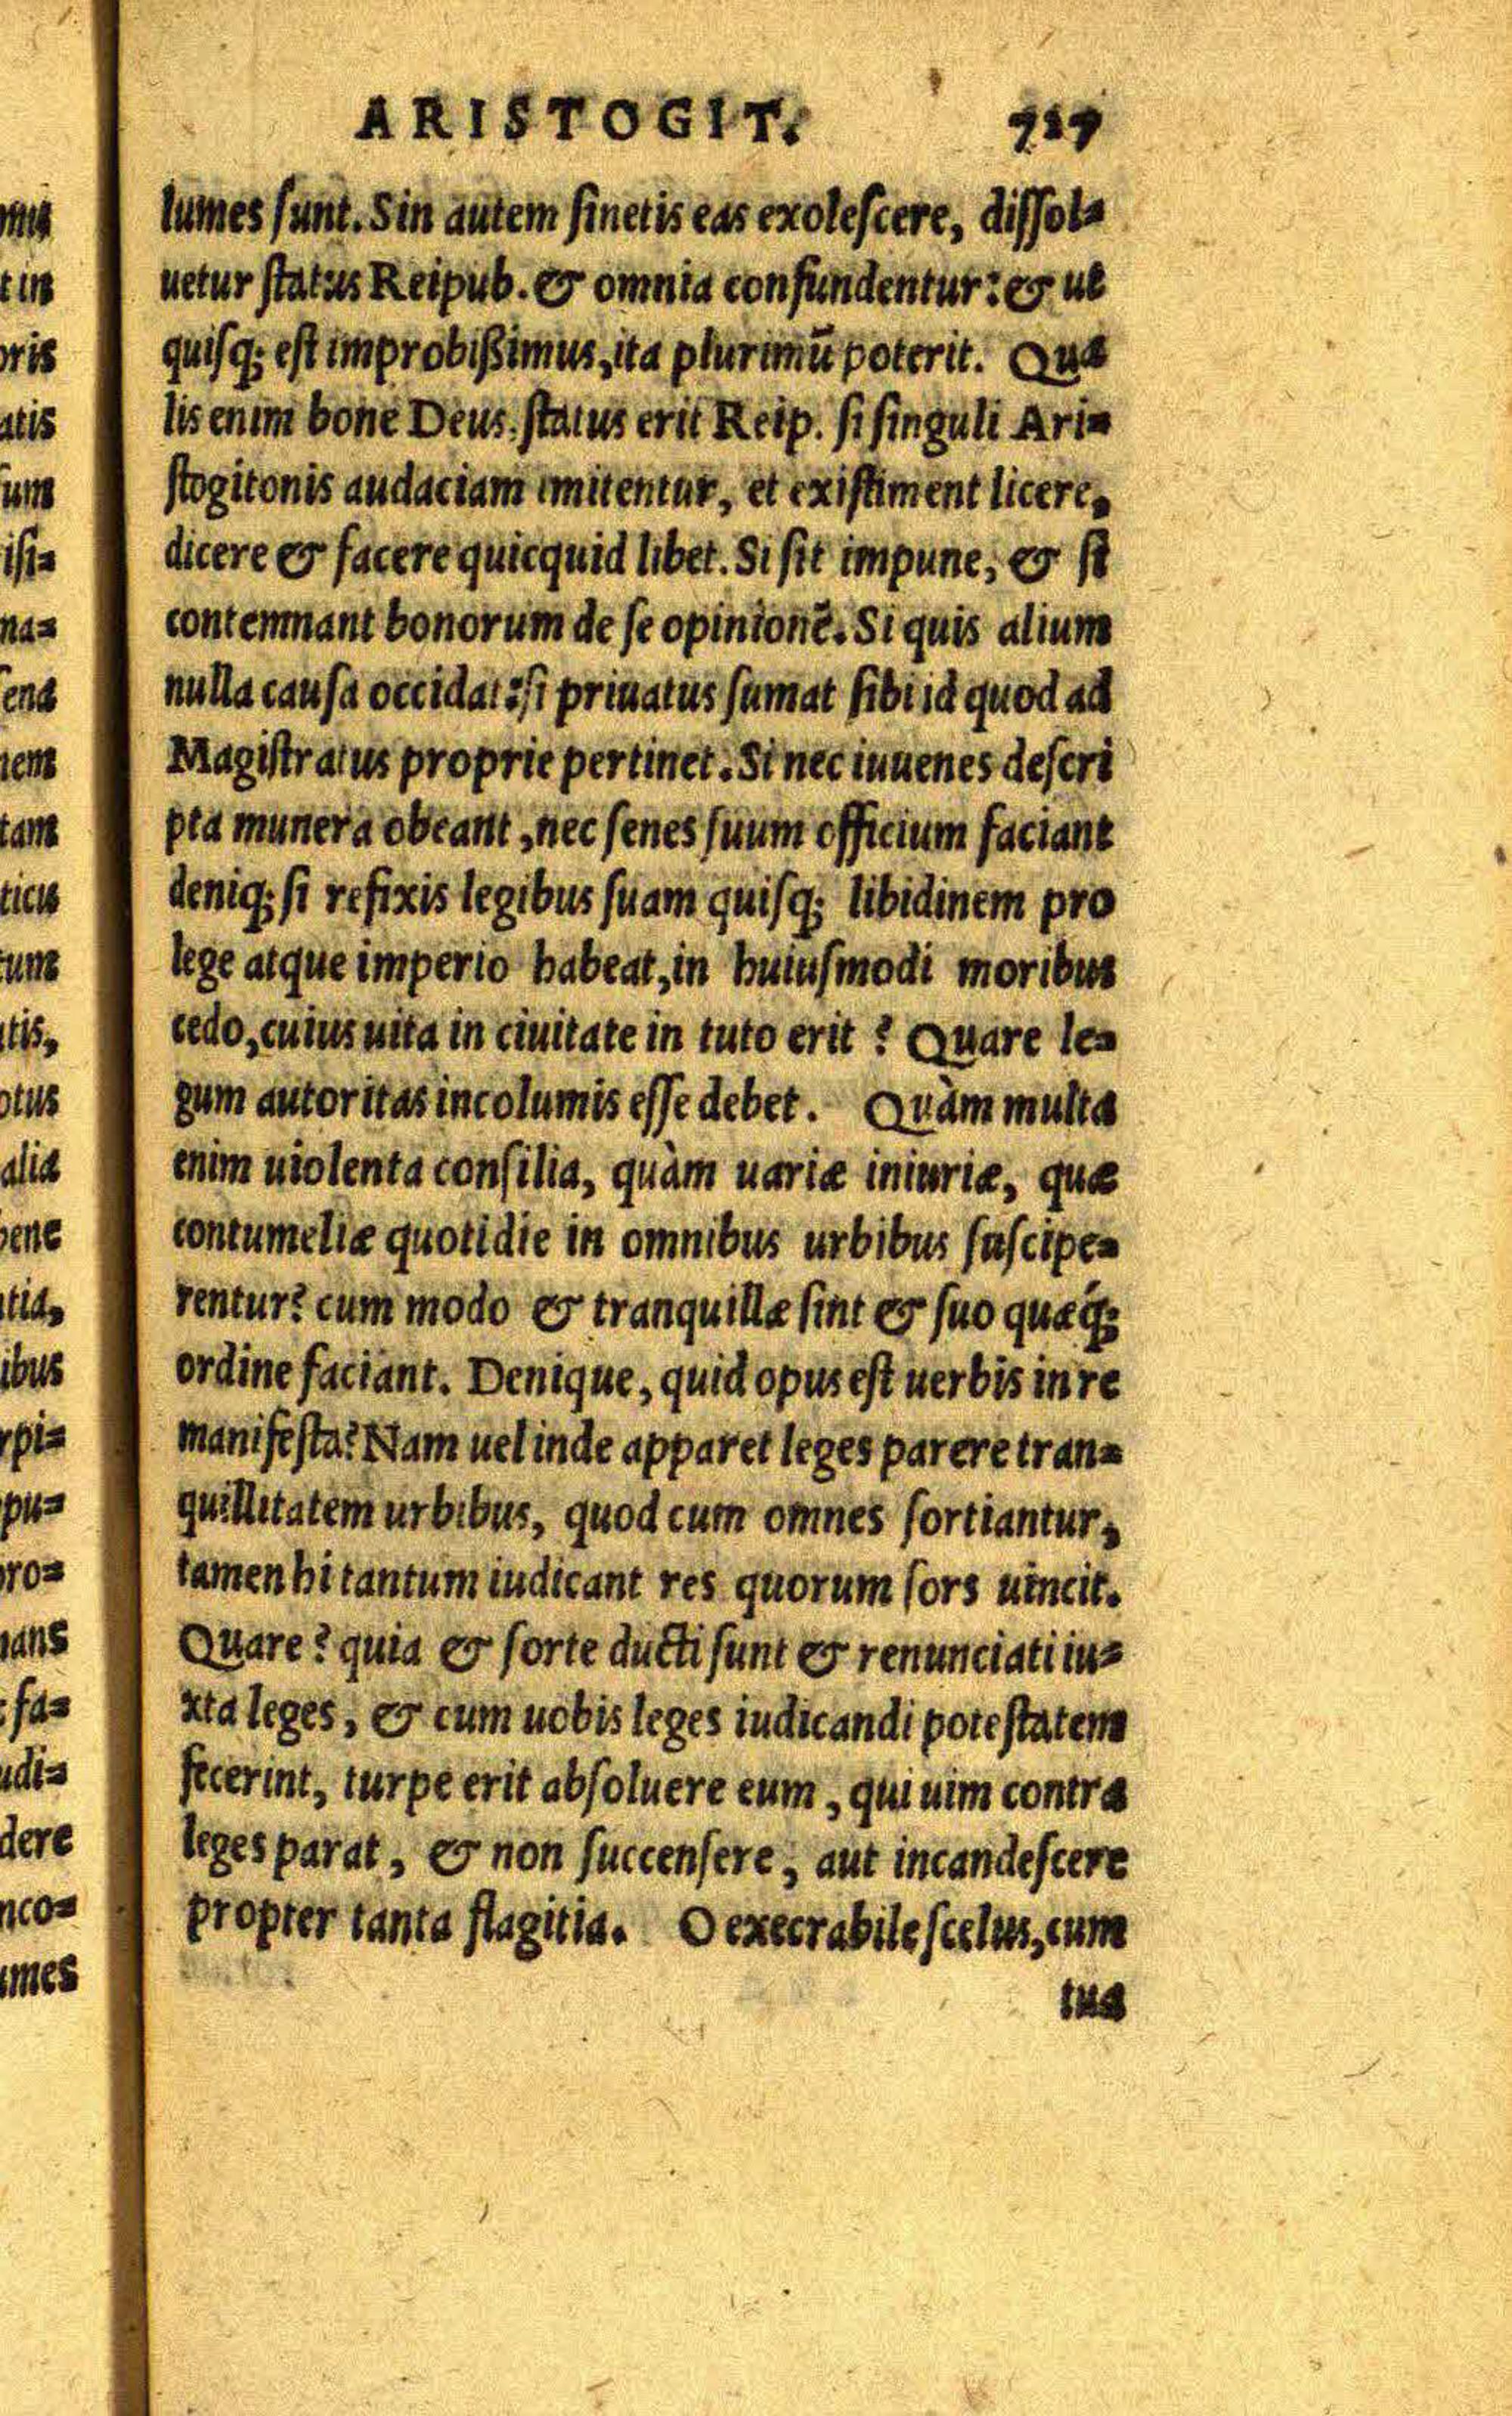 ARISTOGIT. 727
lumes ſunt. Sin autem ſinetis eas exoleſcere, diſſol=
uetur ſtatus Reipub. & omnia confundentur: & ut
quiſq; eſt improbißimus, ita plurimū poterit. Qua
lis enim bone Deus, ſtatus erit Reip. ſi ſinguli Ari=
ſtogitonis audaciam imitentur, et exiſtiment licere,
dicere & facere quicquid libet. Si ſit impune, & ſi
contemnant bonorum de ſe opinionē. Si quis alium
nulla cauſa occidat: ſi priuatus ſumat ſibi id quod ad
Magiſtratus proprie pertinet. Si nec iuuenes deſcri
pta munera obeant, nec ſenes ſuum officium faciant
deniq; ſi refixis legibus ſuam quiſq; libidinem pro
lege atque imperio habeat, in huiuſmodi moribus
cedo, cuius uita in ciuitate in tuto erit? Quare le=
gum autoritas incolumis eſſe debet. Quàm multa
enim uiolenta conſilia, quàm uariæ iniuriæ, quæ
contumeliæ quotidie in omnibus urbibus ſuſcipe=
rentur? cum modo & tranquillæ ſint & ſuo quæq́;
ordine faciant. Denique, quid opus eſt uerbis in re
manifeſta? Nam uel inde apparet leges parere tran=
quillitatem urbibus, quod cum omnes ſortiantur,
tamen hi tantum iudicant res quorum ſors uincit.
Quare? quia & ſorte ducti ſunt & renunciati iu=
xta leges, & cum uobis leges iudicandi poteſtatem
fecerint, turpe erit abſoluere eum, qui uim contra
leges parat, & non ſuccenſere, aut incandeſcere
propter tanta flagitia. O execrabile ſcelus, cum
tua